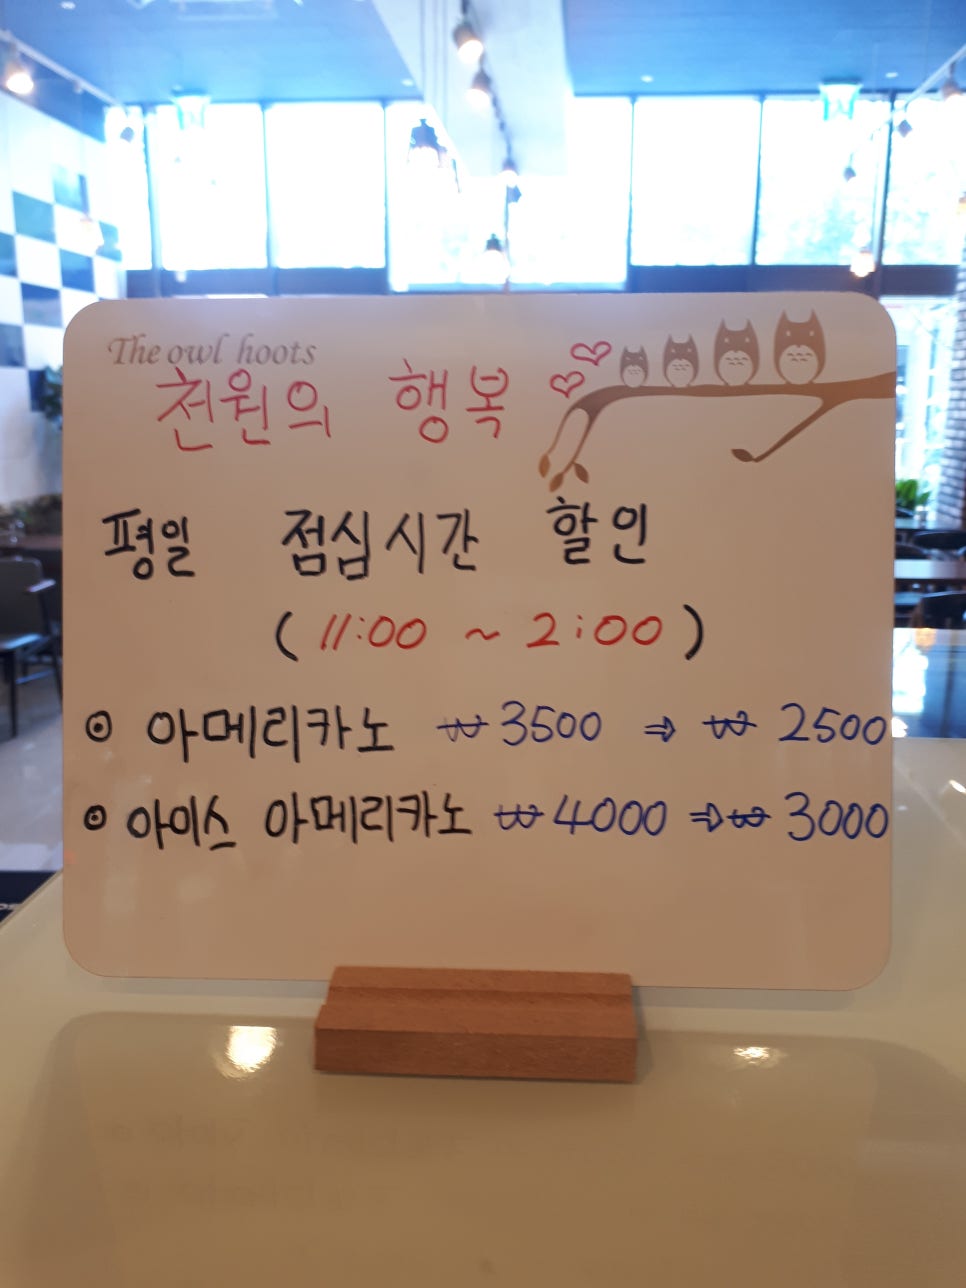 The owl hoots
천원의 행복
평일 점심시간 할인
( 11:00 ~ 2:00 )
⊙ 아메리카노 ₩3500 ⇒ ₩ 2500
⊙ 아이스 아메리카노 ₩4000 ⇒ ₩ 3000